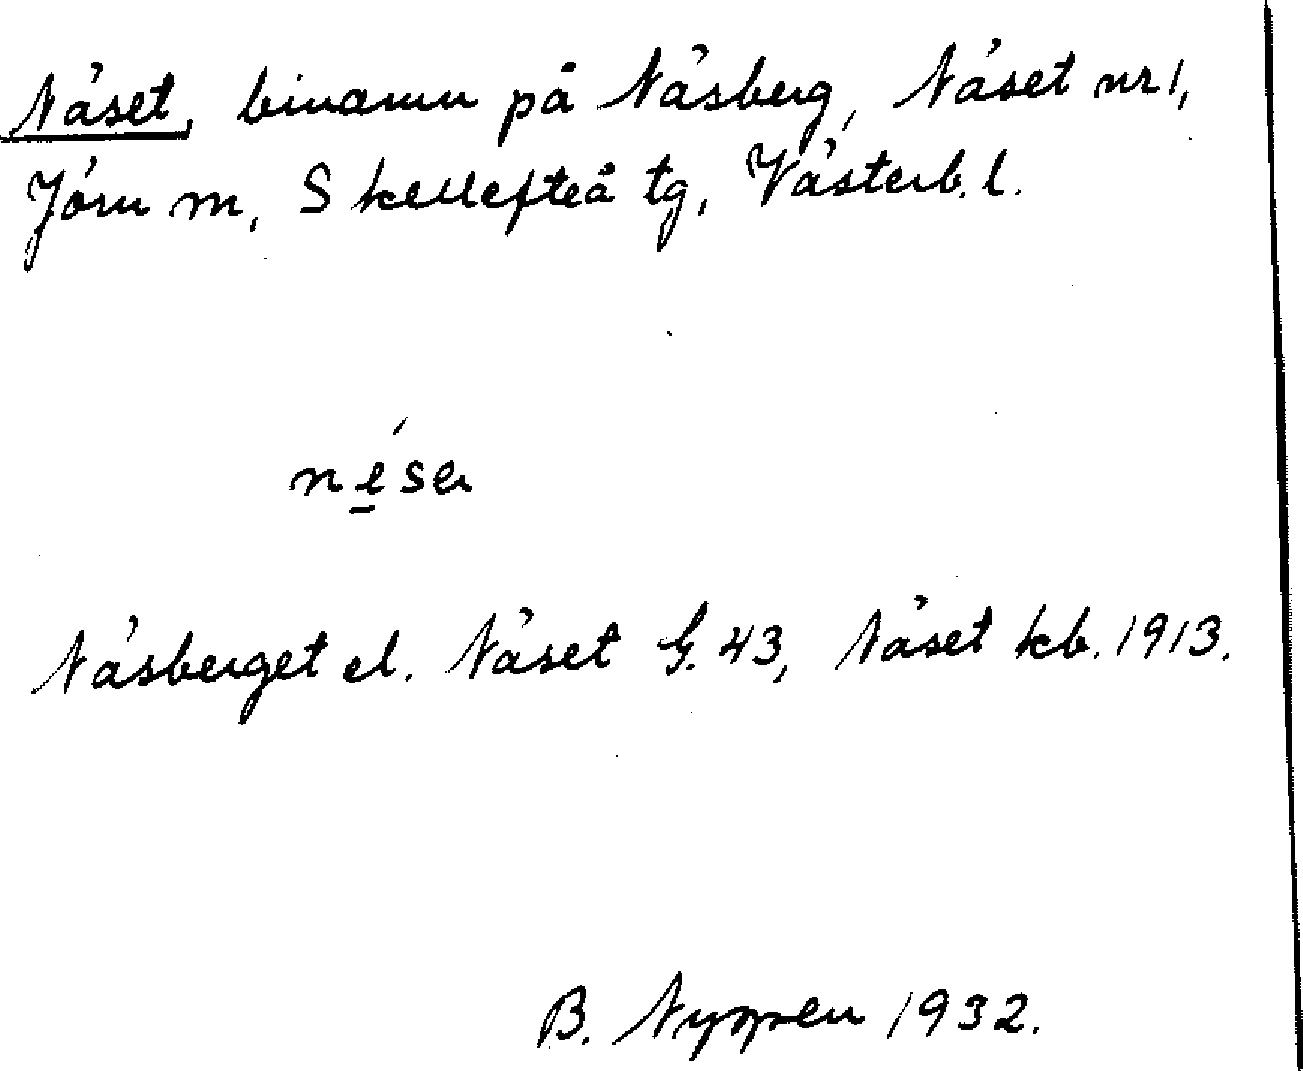 Näset, binamn på Näsberg, Näset nr 1,
Jörn sn, Skellefteå tg, Västerb. l.
Näsberget el. Näset G. 43, Näset kb. 1913.
B. 1932.